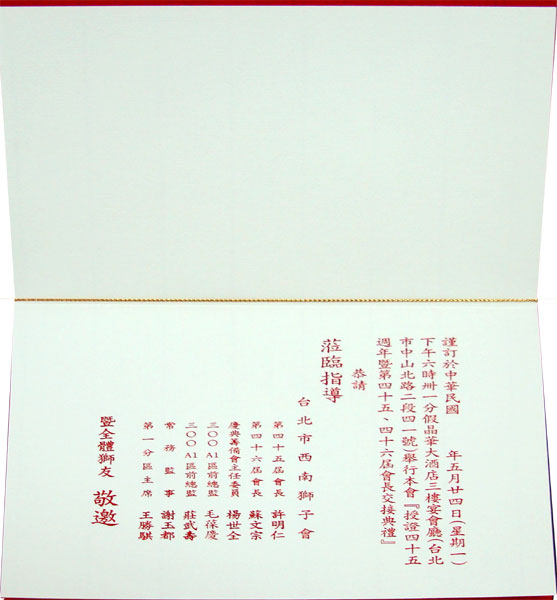 謹訂於中華民國　　年五月廿四日(星期一)
下午六時卅一分假晶華大酒店三樓宴會廳(台北
市中山北路二段四一號)舉行本會『授證四十五
週年暨第四十五、四十六屆會長交接典禮』
恭請
蒞臨指導
台北市西南獅子會
第四十五屆會長 許明仁
第四十六屆會長 蘇文宗
慶典籌備會主任委員 楊世全
三００A1區前總監 毛葆慶
三００A1區前總監 莊武壽
常務監事 謝玉都
第一分區主席 王勝騏
暨全體獅友 敬邀